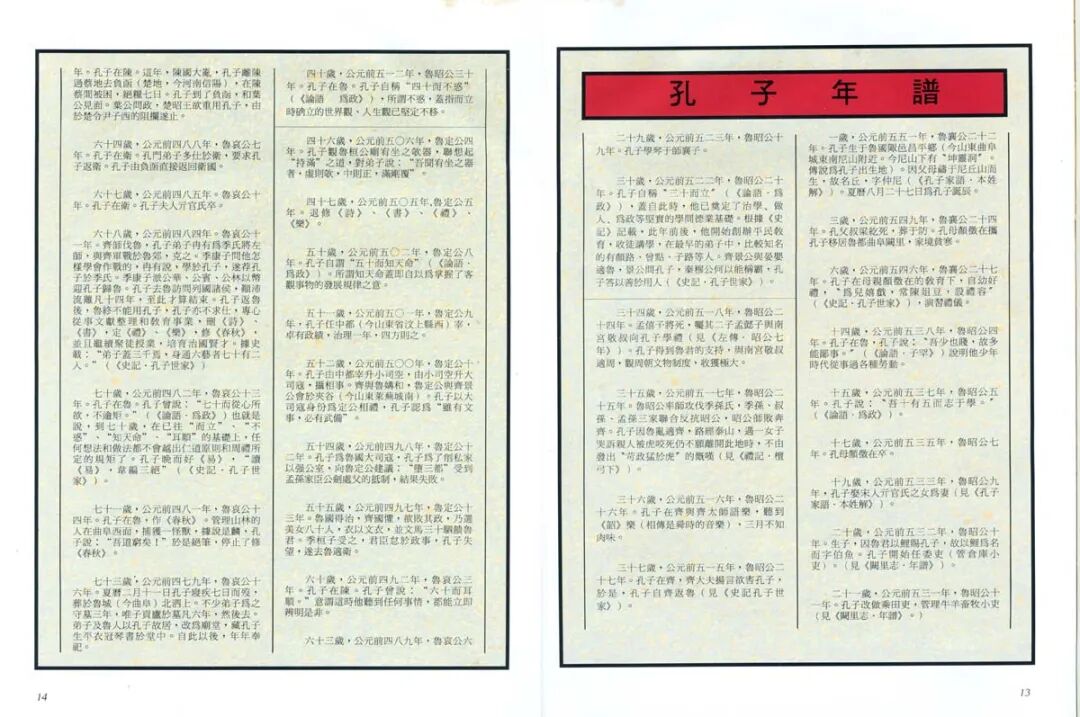 孔子年譜
一歲，公元前五五一年，魯襄公二十二
年。孔子生于魯國陬邑昌平鄉（今山東曲阜
城東南尼山附近。今尼山下有“坤靈洞”。
傳說爲孔子出生地）。因父母禱于尼丘山而
生，故名丘，字仲尼（《孔子家語·本姓
解》）。夏曆八月二十七日爲孔子誕辰。
三歲，公元前五四九年，魯襄公二十四
年。孔父叔梁紇死，葬于防。孔母顏徵在攜
孔子移居魯都曲阜闕里，家境貧寒。
六歲，公元前五四六年，魯襄公二十七
年。孔子在母親顏徵在的教育下，自幼好
禮，“爲兒嬉戲，常陳俎豆，設禮容”
（《史記·孔子世家》），演習禮儀。
十四歲，公元前五三八年，魯昭公四
年。孔子在魯，孔子說：“吾少也賤，故多
能鄙事。”（《論語·子罕》）說明他少年
時代從事過各種勞動。
十五歲，公元前五三七年，魯昭公五
年。孔子說：“吾十有五而志于學。”
（《論語·爲政》）。
十七歲，公元前五三五年，魯昭公七
年。孔母顏徵在卒。
十九歲，公元前五三三年，魯昭公九
年，孔子娶宋人亓官氏之女爲妻（見《孔子
家語·本姓解》）。
二十歲，公元前五三二年，魯昭公十
年。生子，因魯君以鯉賜孔子，故以鯉爲名
而字伯魚。孔子開始任委吏（管倉庫小
吏）。（見《闕里志·年譜》）。
二十一歲，公元前五三一年，魯昭公十
一年。孔子改做乘田吏，管理牛羊畜牧小吏
（見《闕里志·年譜》。）
二十九歲，公元前五二三年，魯昭公十
九年。孔子學琴于師襄子。
三十歲，公元前五二二年，魯昭公二十
年。孔子自稱“三十而立”（《論語·爲
政》），蓋自此時，他已奠定了治學、做
人、爲政等堅實的學問德業基礎。根據《史
記》記載，此年前後，他開始創辦平民教
育，收徒講學，在最早的弟子中，比較知名
的有顏路、曾點、子路等人。齊景公與晏嬰
適魯，景公問孔子，秦穆公何以能稱霸，孔
子答以善於用人（《史記·孔子世家》）。
三十四歲，公元前五一八年，魯昭公二
十四年。孟僖子將死，囑其二子孟懿子與南
宮敬叔向孔子學禮（見《左傳·昭公七
年》）。孔子得到魯君的支持，周南宮敬叔
適周，觀周朝文物制度，收獲極大。
三十五歲，公元前五一七年，魯昭公二
十五年。魯昭公率師攻伐季孫氏，季孫、叔
孫、孟孫三家聯合反抗昭公，昭公師敗奔
齊。孔子因魯亂適齊，路經泰山，遇一女子
哭訴親人被虎咬死仍不願離開此地時，不由
發出“苛政猛於虎”的慨嘆（見《禮記·檀
弓下》）。
三十六歲，公元前五一六年，魯昭公二
十六年，孔子在齊與齊太師語樂，聽到
《韶》樂（相傳是舜時的音樂），三月不知
肉味。
三十七歲，公元前五一五年，魯昭公二
十七年。孔子在齊，齊大夫揚言欲害孔子，
於是，孔子自齊返魯（見《史記孔子世
家》）。
13
四十歲，公元前五一二年，魯昭公三十
年。孔子在魯。孔子自稱“四十而不惑”
（《論語　爲政》），所謂不惑，蓋指而立
時确立的世界觀、人生觀已堅定不移。
四十六歲，公元前五〇六年，魯定公四
年。孔子觀魯桓公廟有坐之欹器，聯想起
“持滿”之道，對弟子說：“吾聞有坐之器
者，虛則欹，中則正，滿則覆”。
四十七歲，公元前五〇五年，魯定公五
年。返修《詩》、《書》、《禮》、
《樂》。
五十歲，公元前五〇二年，魯定公八
年。孔子自謂“五十而知天命”（《論語·
爲政》）。所謂知天命蓋即自以爲掌握了客
觀事物的發展規律之意。
五十一歲，公元前五〇一年，魯定公九
年，孔子任中都（今山東省汶上縣西）宰，
卓有政績，治理一年，四方則之。
五十二歲，公元前五〇〇年，魯定公十
年。孔子由中都宰升小司空，由小司空升大
司寇，攝相事。齊與魯媾和，魯定公與齊景
公會於夾谷（今山東萊蕪城南）。孔子以大
司寇身份爲定公相禮，孔子認爲“雖有文
事，必有武備”。
五十四歲，公元前四九八年，魯定公十
二年。孔子爲魯國大司寇，孔子爲了削私家
以强公室，向魯定公建議：“墮三都”受到
孟孫家臣公劍處父的抵制，結果失敗。
五十五歲，公元前四九七年，魯定公十
三年。魯國得治，齊國懼，欲敗其政，乃選
美女八十人，衣以文衣，並文馬三十駟饋魯
君。季桓子受之，君臣怠於政事，孔子失
望，遂去魯適衛。
六十歲，公元前四九二年，魯哀公三
年。孔子在陳。孔子曾說：“六十而耳
順。”意謂這時他聽到任何事情，都能立即
辨明是非。
六十三歲，公元前四八九年，魯哀公六
年。孔子在陳。這年，陳國大亂，孔子離陳
過蔡地去負函（楚地，今河南信陽），在陳
蔡間被困，絕糧七日。孔子到了負函，和葉
公見面。葉公問政，楚昭王欲重用孔子，由
於楚令尹子西的阻攔遂止。
六十四歲，公元前四八八年，魯哀公七
年。孔子在衛。孔門弟子多仕於衛，要求孔
子返衛。孔子由負函直接返回衛國。
六十七歲，公元前四八五年。魯哀公十
年。孔子在衛。孔子夫人亓官氏卒。
六十八歲，公元前四八四年。魯哀公十
一年。齊師伐魯，孔子弟子冉有爲季氏將左
師，與齊軍戰於魯郊，克之。季康子問他怎
樣學會作戰的，冉有說，學於孔子，遂荐孔
子於季氏。季康子派公華、公賓、公林以幣
迎孔子歸魯。孔子去魯訪問列國諸侯，顛沛
流離凡十四年，至此才算結束。孔子返魯
後，魯終不能用孔子，孔子亦不求仕，專心
從事文獻整理和教育事業，刪《詩》、
《書》，定《禮》、《樂》，修《春秋》，
並且繼續聚徒授業，培育治國賢才。據史
載：“弟子蓋三千焉，身通六藝者七十有二
人。”（《史記·孔子世家》）
七十歲，公元前四八二年，魯哀公十三
年。孔子在魯。孔子曾說：“七十而從心所
欲，不逾矩。”（《論語·爲政》）也就是
說，到七十歲，在已往“而立”、“不
惑”、“知天命”、“耳順”的基礎上，任
何想法和做法都不會越出仁道原則和周禮所
定的規矩了。孔子晚而好《易》，“讀
《易》，韋編三絕”（《史記·孔子世
家》）。
七十一歲，公元前四八一年，魯哀公十
四年。孔子在魯，作《春秋》。管理山林的
人在曲阜西面，捕獲一怪獸，據說是麟，孔
子說：“吾道窮矣！”於是絕筆，停止了修
《春秋》。
七十三歲，公元前四七九年，魯哀公十
六年。夏曆二月十一日孔子寢疾七日而歿，
葬於魯城（今曲阜）北泗上。不少弟子爲之
守墓三年，唯子貢廬於墓凡六年，然後去。
弟子及魯人以孔子故居，改爲廟堂，藏孔子
生平衣冠琴書於堂中。自此以後，年年奉
祀。
14